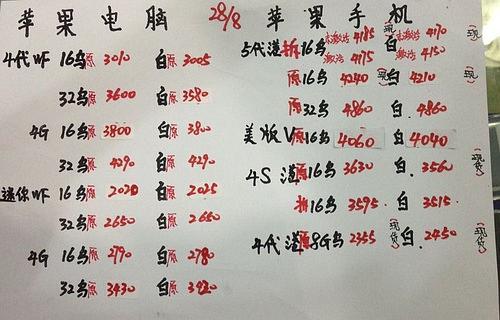 苹果电脑 28/8 苹果手机
4代WF 16乌原 3010 白原 3005
32乌原 3600 白原 3580
4G 16乌原 3800 白原 3800
32乌原 4290 白原 4290
迷你WF 16乌原 2020 白原 2025
32乌原 2650 白原 2660
4G 16乌原 2790 白原 2780
32乌原 3430 白原 3420
5代港拆16乌 未激活 4185 白 未激活 4170 (现)
激活 4175 激活 4150
原16乌 4240 (现) 白 4210 (现)
原32乌 4860 白. 4860
美版V原16乌 4060 白 4040
4S 港原16乌 3630 白. 3560 (现货)
拆16乌 3595. 白 3515.
4代港原8G乌 2355 (现货) 白. 2450 (现货)